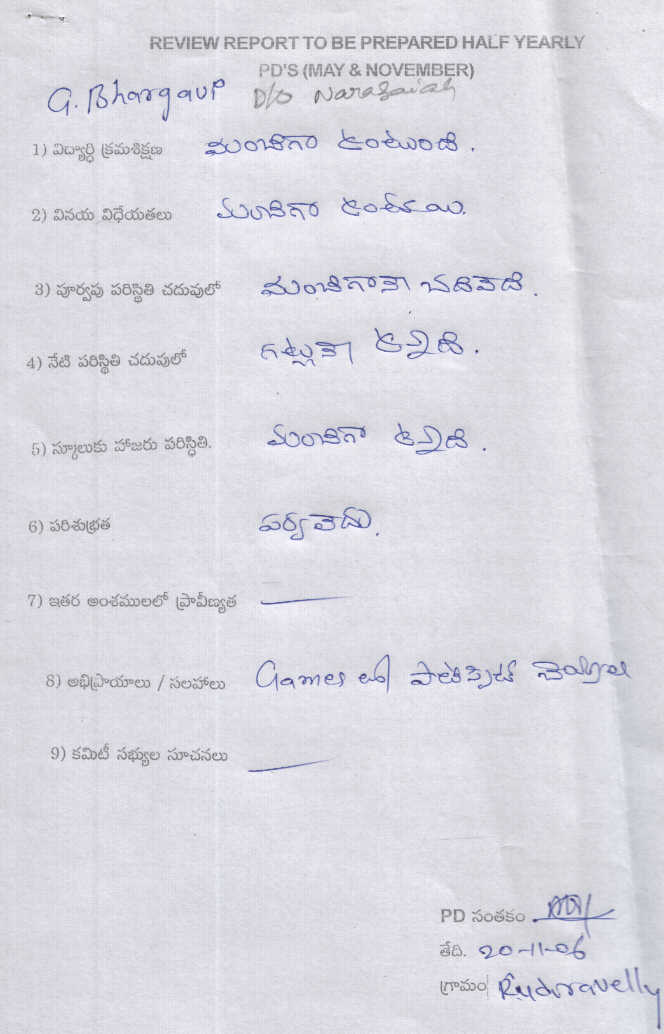 REVIEW REPORT TO BE PREPARED HALF YEARLY
PD'S (MAY & NOVEMBER)
G. Bhargavi D/o Narasaiah
1) విద్యార్థి క్రమశిక్షణ మంచిగా ఉంటుంది.
2) వినయ విధేయతలు మంచిగా ఉంటాయి.
3) పూర్వపు పరిస్థితి చదువులో మంచిగానే చదివేది.
4) నేటి పరిస్థితి చదువులో ఉన్నాది.
5) స్కూలుకు హాజరు పరిస్థితి. మంచిగా ఉన్నాది.
6) పరిశుభ్రత పర్వలేదు.
7) ఇతర అంశములలో ప్రావీణ్యత
8) అభిప్రాయాలు / సలహాలు Games లో చెయ్యాల
9) కమిటీ సభ్యుల సూచనలు
PD సంతకం
తేది. 20-11-06
గ్రామం Rudravelly